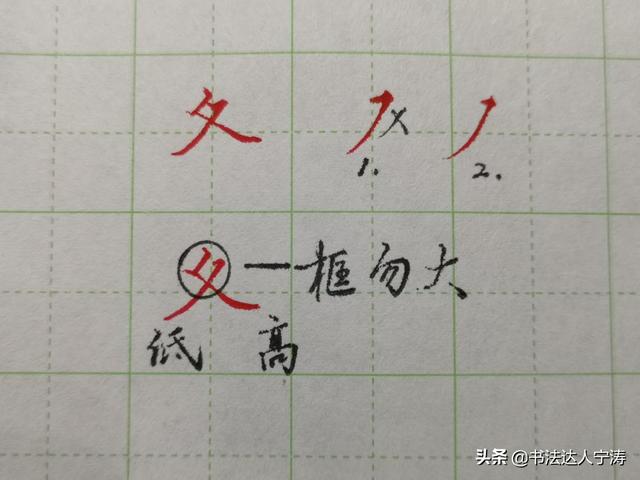 夂
1. 2.
夂 框勿大
低 高
头条 @书法达人宁涛